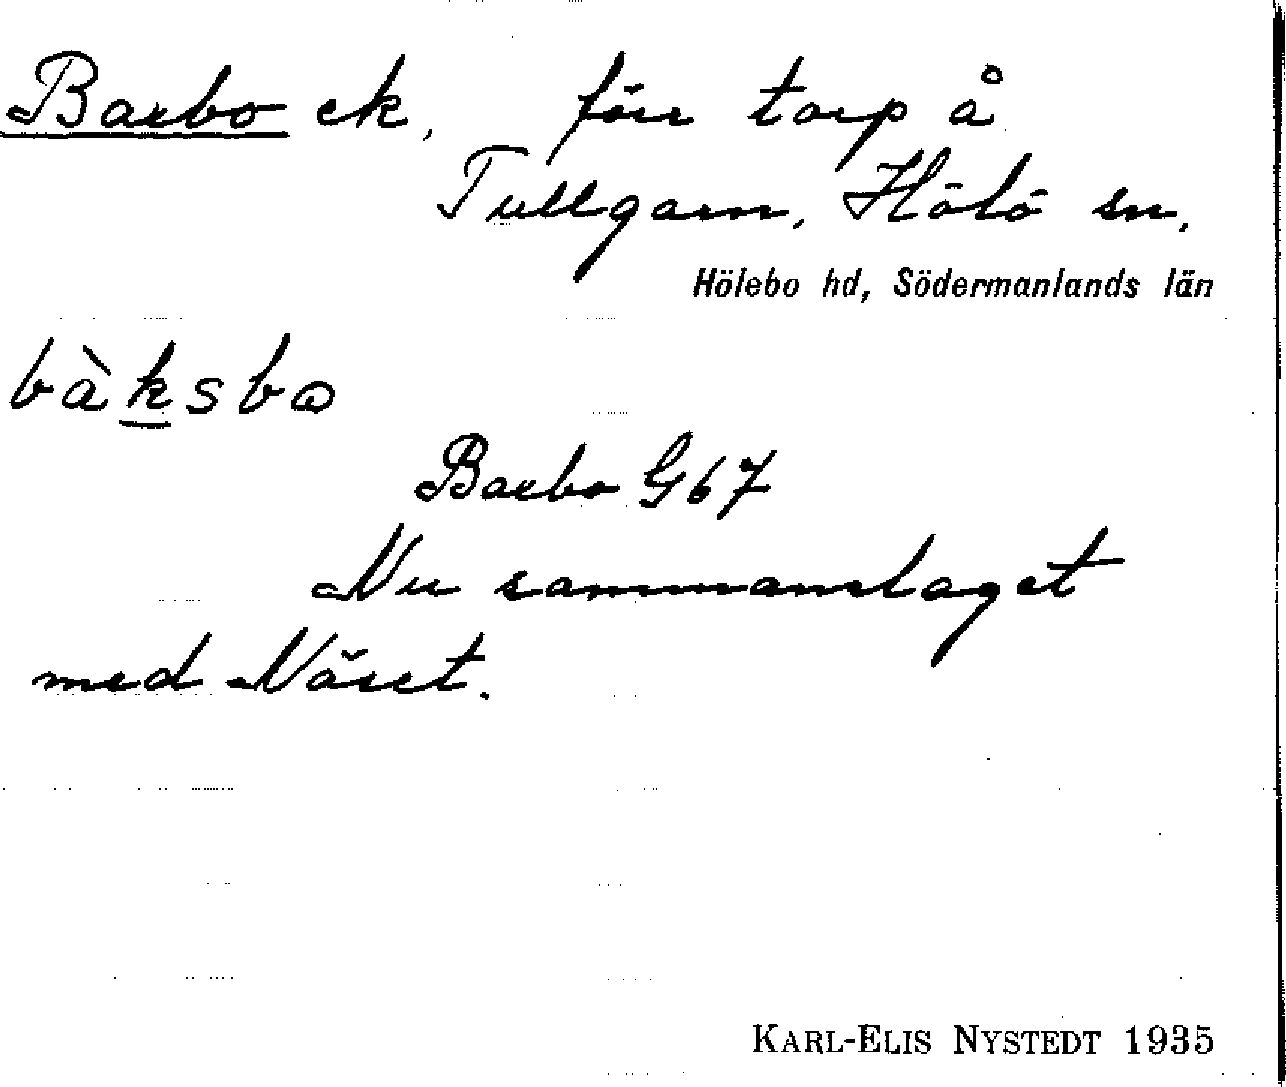 Barbo ek, förr torp å
Tullgarn, Hölö sn,
Hölebo hd, Södermanlands län
bàksbo
Barbo G67
Nu sammanslaget
med Näset.
KARL-ELIS NYSTEDT 1935